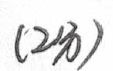 (2分)